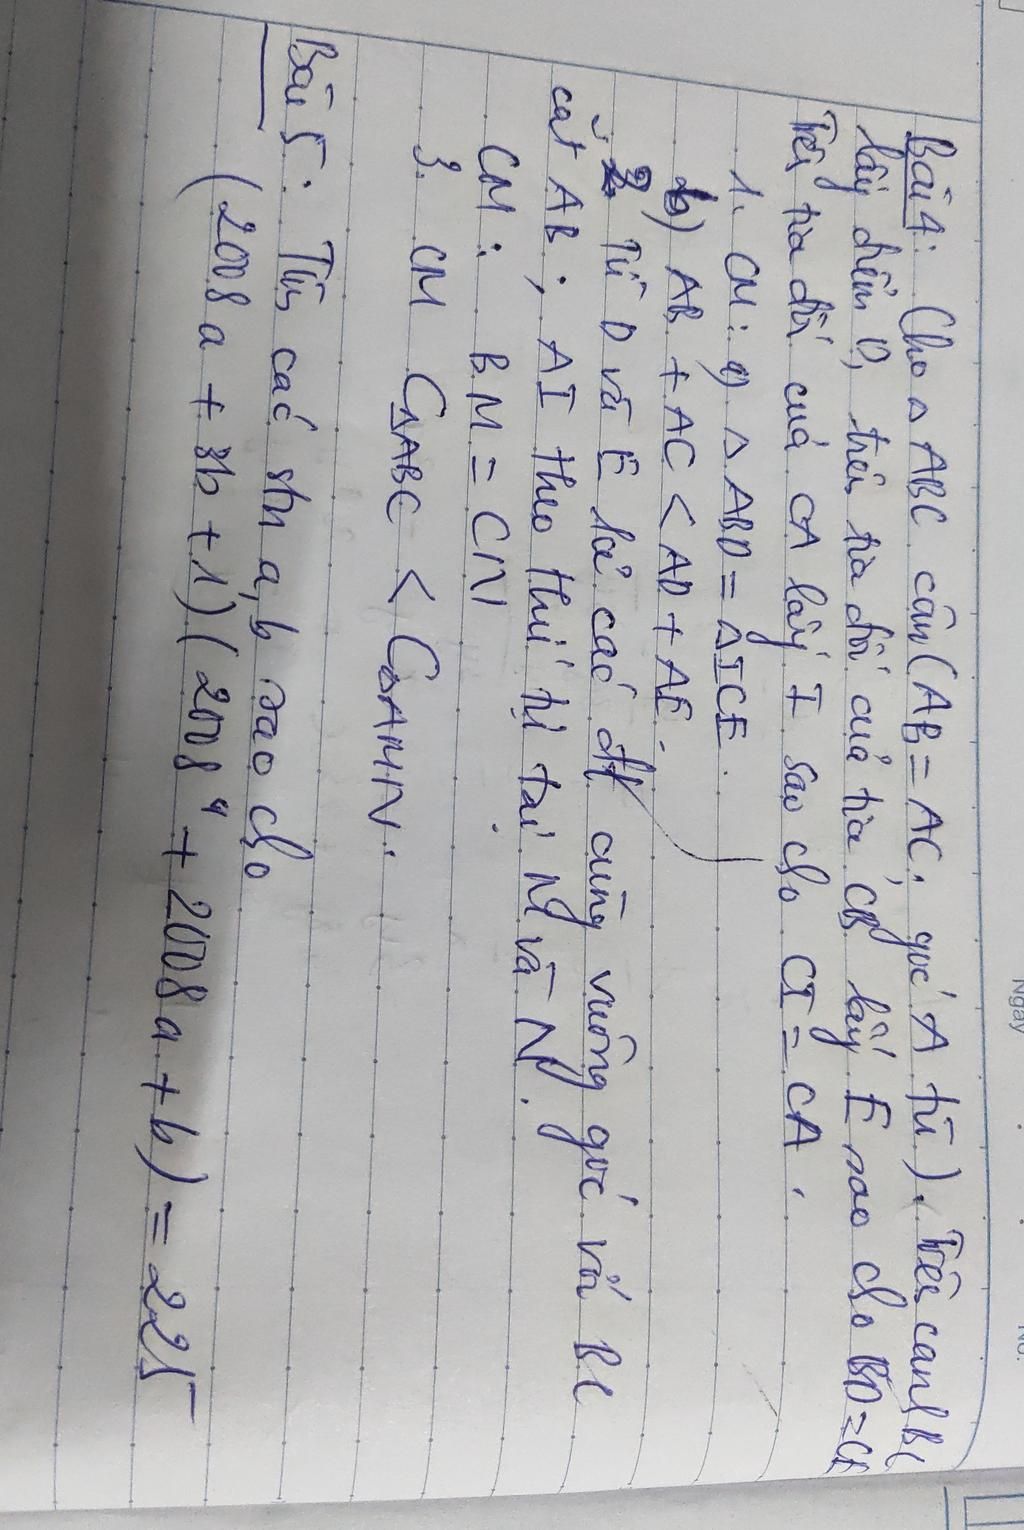 Ngày
No.
Bài 4: Cho △ABC cân (AB = AC; góc A tù). Trên cạnh BC
lấy điểm D, trên tia đối của tia CB lấy E sao cho BD = CE
Trên tia đối của CA lấy I sao cho CI = CA.
1. CM: a) △ABD = △ICE.
b) AB + AC < AD + AE.
2. Từ D và E kẻ các đt cùng vuông góc với BC
cắt AB; AI theo thứ tự tại M và N.
CM: BM = CN
3. CM C△ABC < C△AMN.
Bài 5: Tìm các stn a, b sao cho
(2008a + 3b + 1)(2008ᵃ + 2008a + b) = 225